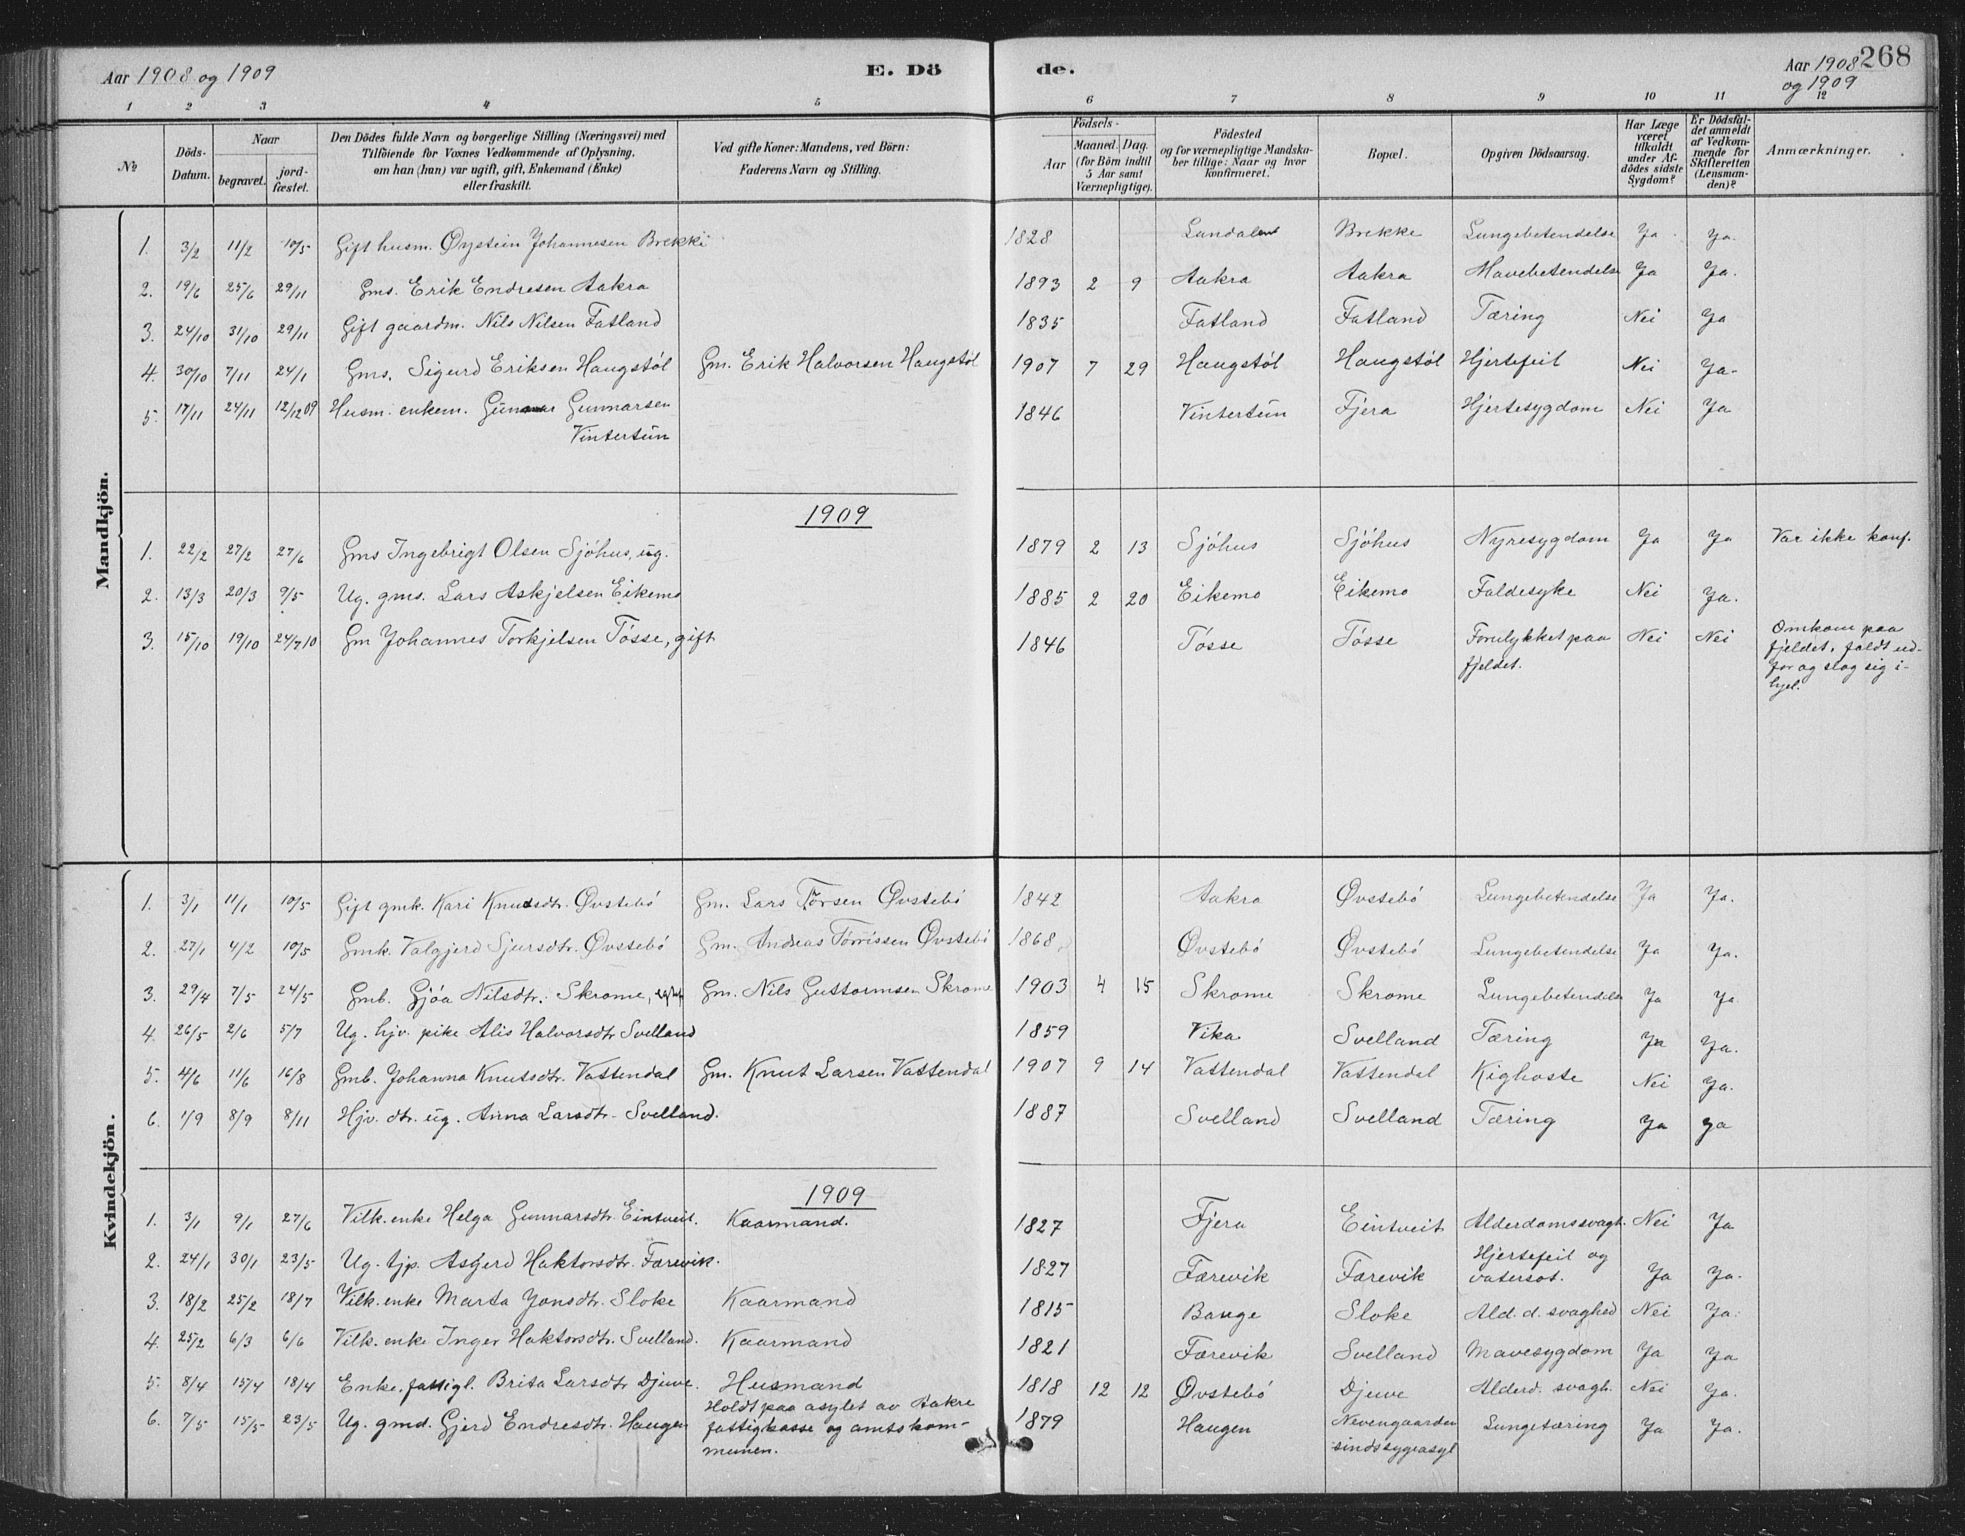 Aar 1908 og 1909 E. Dö de. Aar 1908 268
og 1909
1 2 3 4 5 6 7 8 9 10 11 12
№ Döds-Datum. Naar begravet. jord-fæstet. Den Dödes fulde Navn og borgerlige Stilling (Næringsvei) med Tilföiende for Voxnes Vedkommende af Oplysning, om han (hun) var ugift, gift, Enkemand (Enke) eller fraskilt. Ved gifte Koner: Mandens, ved Börn: Faderens Navn og Stilling. Födsels- Aar Maaned. Dag. (for Börn indtil 5 Aar samt Værnepligtige). Födested og for værnepligtige Mandskaber tillige: Naar og hvor konfirmeret. Bopæl. Opgiven Dödsaarsag. Har Læge været tilkaldt under Afdödes sidste Sygdom? Er Dödsfaldet anmeldt af Vedkommende for Skifteretten (Lensmanden)? Anmærkninger.
Mandkjön.
1. 3/2 11/2 10/5 Gift husm. Øystein Johannesen Brekki 1828 Brekke Lungebetendelse Ja Ja.
2. 19/6 25/6 29/11 Gms. Erik Endresen Aakra 1893 2 9 Aakra Aakra Mavebetendelse Ja Ja.
3. 24/10 31/10 29/11 Gift gaardm. Nils Nilsen Fatland 1835 Fatland Fatland Tæring Nei Ja
4. 30/10 7/11 24/1 Gms. Sigurd Eriksen Haugstøl Gm. Erik Halvorsen Haugstøl 1907 7 29 Haugstøl Haugstøl Hjertefeil Nei Ja.
5. 17/11 24/11 12/12 09 Husm. enkem. Gunnar Gunnarsen 1846 Vintertun Fjera Hjertesygdom Nei Ja
Vintertun
1909
1. 22/2 27/2 27/6 Gms Ingebrigt Olsen Sjóhus, ug. 1879 2 13 Sjóhus Sjóhus Nyresygdom Ja Ja Var ikke konf.
2. 13/3 20/3 9/5 Ug. gms. Lars Askjelsen Eikemo 1885 2 20 Eikemo Eikemo Faldesyke Nei Ja.
3. 15/10 19/10 24/7 10 Gm Johannes Torkjelsen Tósse, gift 1846 Tósse Tósse Forulykket paa fjeldet. Nei Nei Omkom paa
fjeldet, faldt ud-
for og slog sig i-
hjel.
Kvindekjön.
1. 3/1 11/1 10/5 Gift gmk. Kari Knudsdtr. Øvstebó Gm. Lars Tørsen Øvstebó 1842 Aakra Øvstebó Lungebetendelse Ja Ja.
2. 27/1 4/2 10/5 Gmk. Valgjerd Sjursdtr. Øvstebó Gm. Andreas Tørrissen Øvstebó 1868 Øvstebó Øvstebó Lungebetendelse Ja Ja.
3. 29/4 7/5 24/5 Gmb. Gjóa Nilsdtr. Skrome, Gm. Nils Guttormsen Skrome 1903 4 15 Skrome Skrome Lungebetendelse Ja Ja
4. 26/5 2/6 5/7 Ug. hjv. pike Alis Halvorsdtr Svelland 1859 Vika Svelland Tæring Ja Ja.
5. 4/6 11/6 16/8 Gmb. Johanna Knutsdtr. Vattendal Gm. Knut Larsen Vattendal 1907 9 14 Vattendal Vattendal Kighoste Nei Ja.
6. 1/9 8/9 8/11 Hjv. dtr. ug. Anna Larsdtr. Svelland. 1887 Svelland Svelland Tæring Ja Ja
1909
1. 3/1 9/1 27/6 Vilk. enke Helga Gunnarsdtr. Eintveit. Kaarmand. 1827 Fjera Eintveit Alderdomssvagh. Nei Ja
2. 24/1 30/1 23/5 Ug. tjp. Asgerd Haktorsdtr. Færevik. 1827 Færevik Færevik Hjertefeil og vatersot. Ja Ja.
3. 18/2 25/2 18/7 Vilk. enke Marta Jonsdtr. Sloke Kaarmand 1815 Bauge Sloke Ald. d. svaghed Nei Ja.
4. 25/2 6/3 6/6 Vilk. enke Inger Haktorsdtr. Svelland. Kaarmand 1821 Færevik Svelland Mavesygdom Ja Ja
5. 8/4 15/4 18/4 Enke, fattigl. Brita Larsdtr Djuve. Husmand 1818 12 12 Øvstebó Djuve Alderd. svagh. Nei Ja.
6. 7/5 15/5 23/5 Ug. gmd. Gjerd Endresdtr. Haugen Holdt paa asylet av Aakre 1879 Haugen Nevengaarden sindssygeasyl Lungetæring Ja Ja.
fattigkasse og amtskom-
munen.